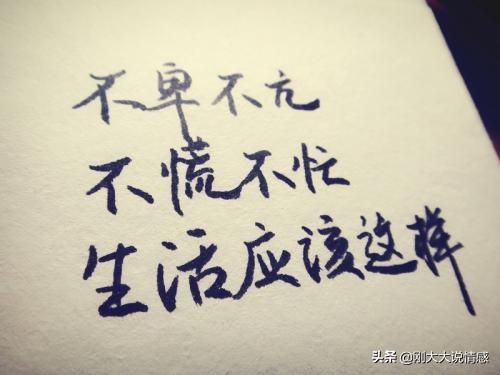 不卑不亢
不慌不忙
生活应该这样
头条 @刚大大说情感